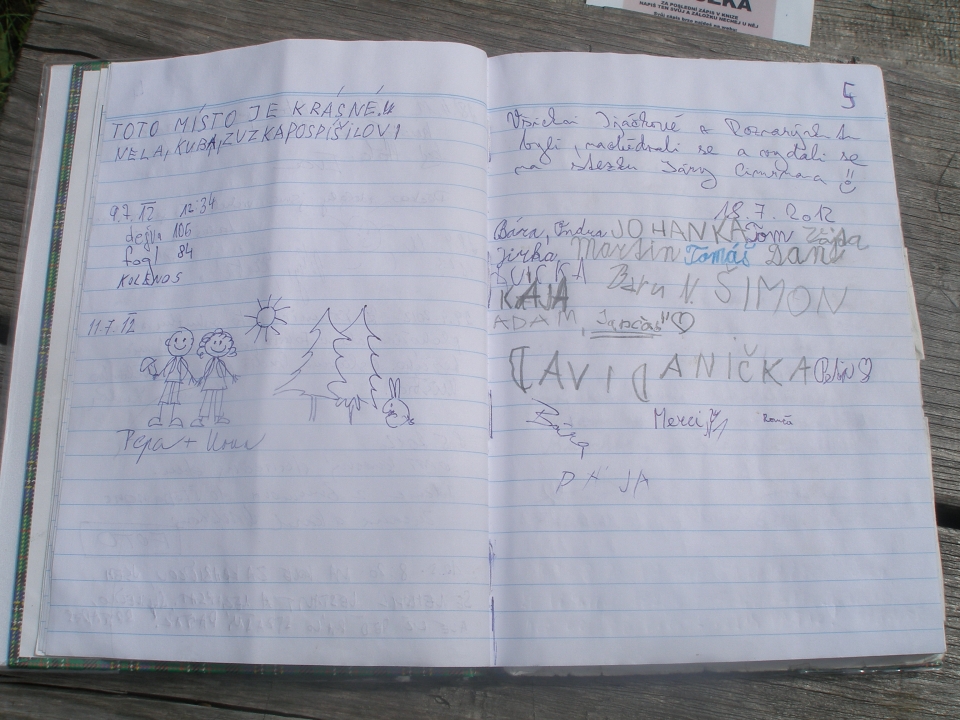 ZA POSLEDNÍ ZÁPIS V KNIZE
NAPIŠ TEN SVŮJ A ZÁLOŽKU NECHEJ U NĚJ
TOTO MÍSTO JE KRÁSNÉ!!
NELA, KUBA, ZUZKA POSPÍŠILOVI
9.7. 12 12:34
106
fogl 84
KOLENOS
11.7. 12
Pepa +
5
Všichni a
byli, nadchnuli se a vydali se
na stezku Járy Cimrmana !!
18.7. 2012
Bára, Ondra JOHANKA Tom Vojta
Jirka, Martin Tomáš Dan
LUCKA Bára V. ŠIMON
KÁJA
ADAM,
DAVID ANIČKA
Bára Merci
PÁJA